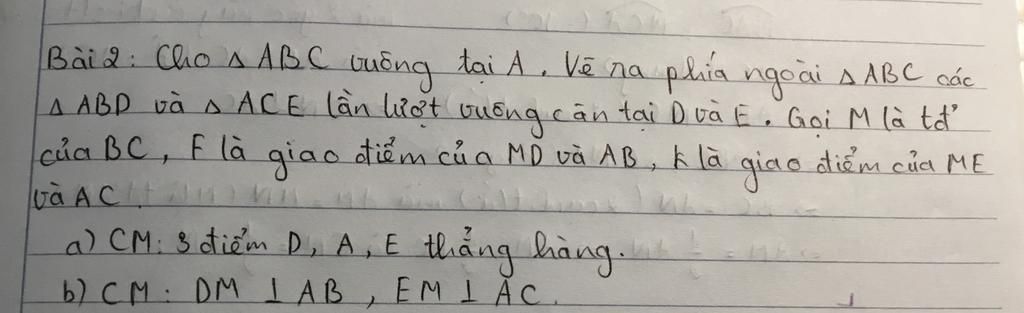 Bài 2: Cho △ ABC vuông tại A. Vẽ ra phía ngoài △ ABC các
△ ABD và △ ACE lần lượt vuông cân tại D và E. Gọi M là tđ
của BC, F là giao điểm của MD và AB, K là giao điểm của ME
và AC.
a) CM: 3 điểm D, A, E thẳng hàng.
b) CM: DM ⊥ AB, EM ⊥ AC.